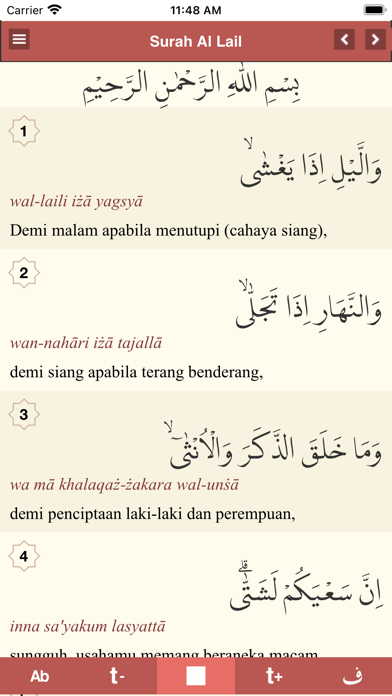 Carrier 11:48 AM
Surah Al Lail
بِسْمِ اللّٰهِ الرَّحْمٰنِ الرَّحِيْمِ
1
وَالَّيْلِ اِذَا يَغْشٰىۙ
wal-laili iżā yagsyā
Demi malam apabila menutupi (cahaya siang),
2
وَالنَّهَارِ اِذَا تَجَلّٰىۙ
wan-nahāri iżā tajallā
demi siang apabila terang benderang,
3
وَمَا خَلَقَ الذَّكَرَ وَالْاُنْثٰىٓۙ
wa mā khalaqaż-żakara wal-unṡā
demi penciptaan laki-laki dan perempuan,
4
اِنَّ سَعْيَكُمْ لَشَتّٰىۗ
inna sa'yakum lasyattā
sungguh, usahamu memang beraneka macam.
Ab t- t+ ف